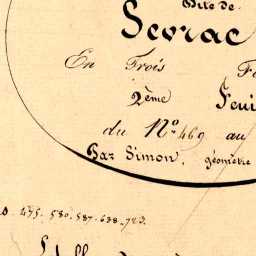 Dite de
Sevrac
En Trois
2ème Feui
du N° 469 au
Par Simon, géomètre
475. 580. 587. 638. 723.